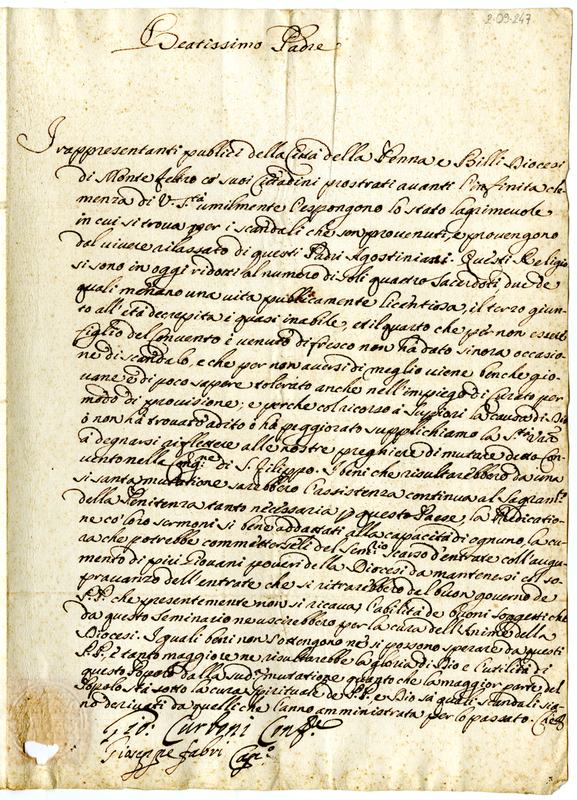 2-09-247
Beatissimo Padre
I rappresentanti publici della Città della Penna e Billi Diocesi
di Monte feltro co' suoi Cittadini prostrati avanti l'infinita cle-
menza di V. Stà umilmente l'espongono lo stato lagrimevole
in cui si trova per i scandali che son provenuti, e provengono
dal vivere rilassato di questi Padri Agostiniani. Questi Religio
si sono in oggi ridotti al numero di soli quattro Sacerdoti due de
quali menano una vita publicamente licentiosa, il terzo giun-
to all'età decrepita è quasi inabile, et il quarto che per non esser
figlio del Convento è venuto di fresco non ha dato sinora occasio-
ne di scandalo, e che per non aversi di meglio viene benche gio-
vane e di poco sapere tolerato anche nell'impiego di Curato per
modo di provisione; e perche col ricorso ai Superiori la causa di Dio
ò non ha trovato adito ò ha peggiorato supplichiamo la Stà Vra
a degnarsi riflettere alle nostre preghiere di mutare detto Con-
vento nella Congne di S. Filippo. I beni che risultarebbero da una
sì santa mutatione sarebbero l'assistenza continua al Sagramto
della Penitenza tanto necessaria p questo Paese, la Predicatio-
ne co' loro sermoni sì bene addattati alla capacità di ognuno, la cu-
ra che potrebbe commetterseli del Semrio scarso d'entrate coll'augu-
mento di più Giovani poveri della Diocesi da mantenersi col so-
pravanzo dell'entrate che si ritrarebbero dal buon governo de
P.P. che presentemente non si ricava, l'abilità de buoni soggetti che
da questo Seminario ne uscirebbero per la cura dell'Anime della
Diocesi. I quali beni non s'ottengono nè si possono sperare da questi
P.P.; e tanto maggiore ne risultarebbe la gloria di Dio e l'utilità di
questo Popolo dalla sudta mutatione quanto che la maggior parte del
Popolo stà sotto la cura spirituale de P.P. e Dio sà quali scandali sia-
no derivati da quelli che l'anno amministrata per lo passato. Che
Gio: Curboni Confre
Giuseppe fabri Capno